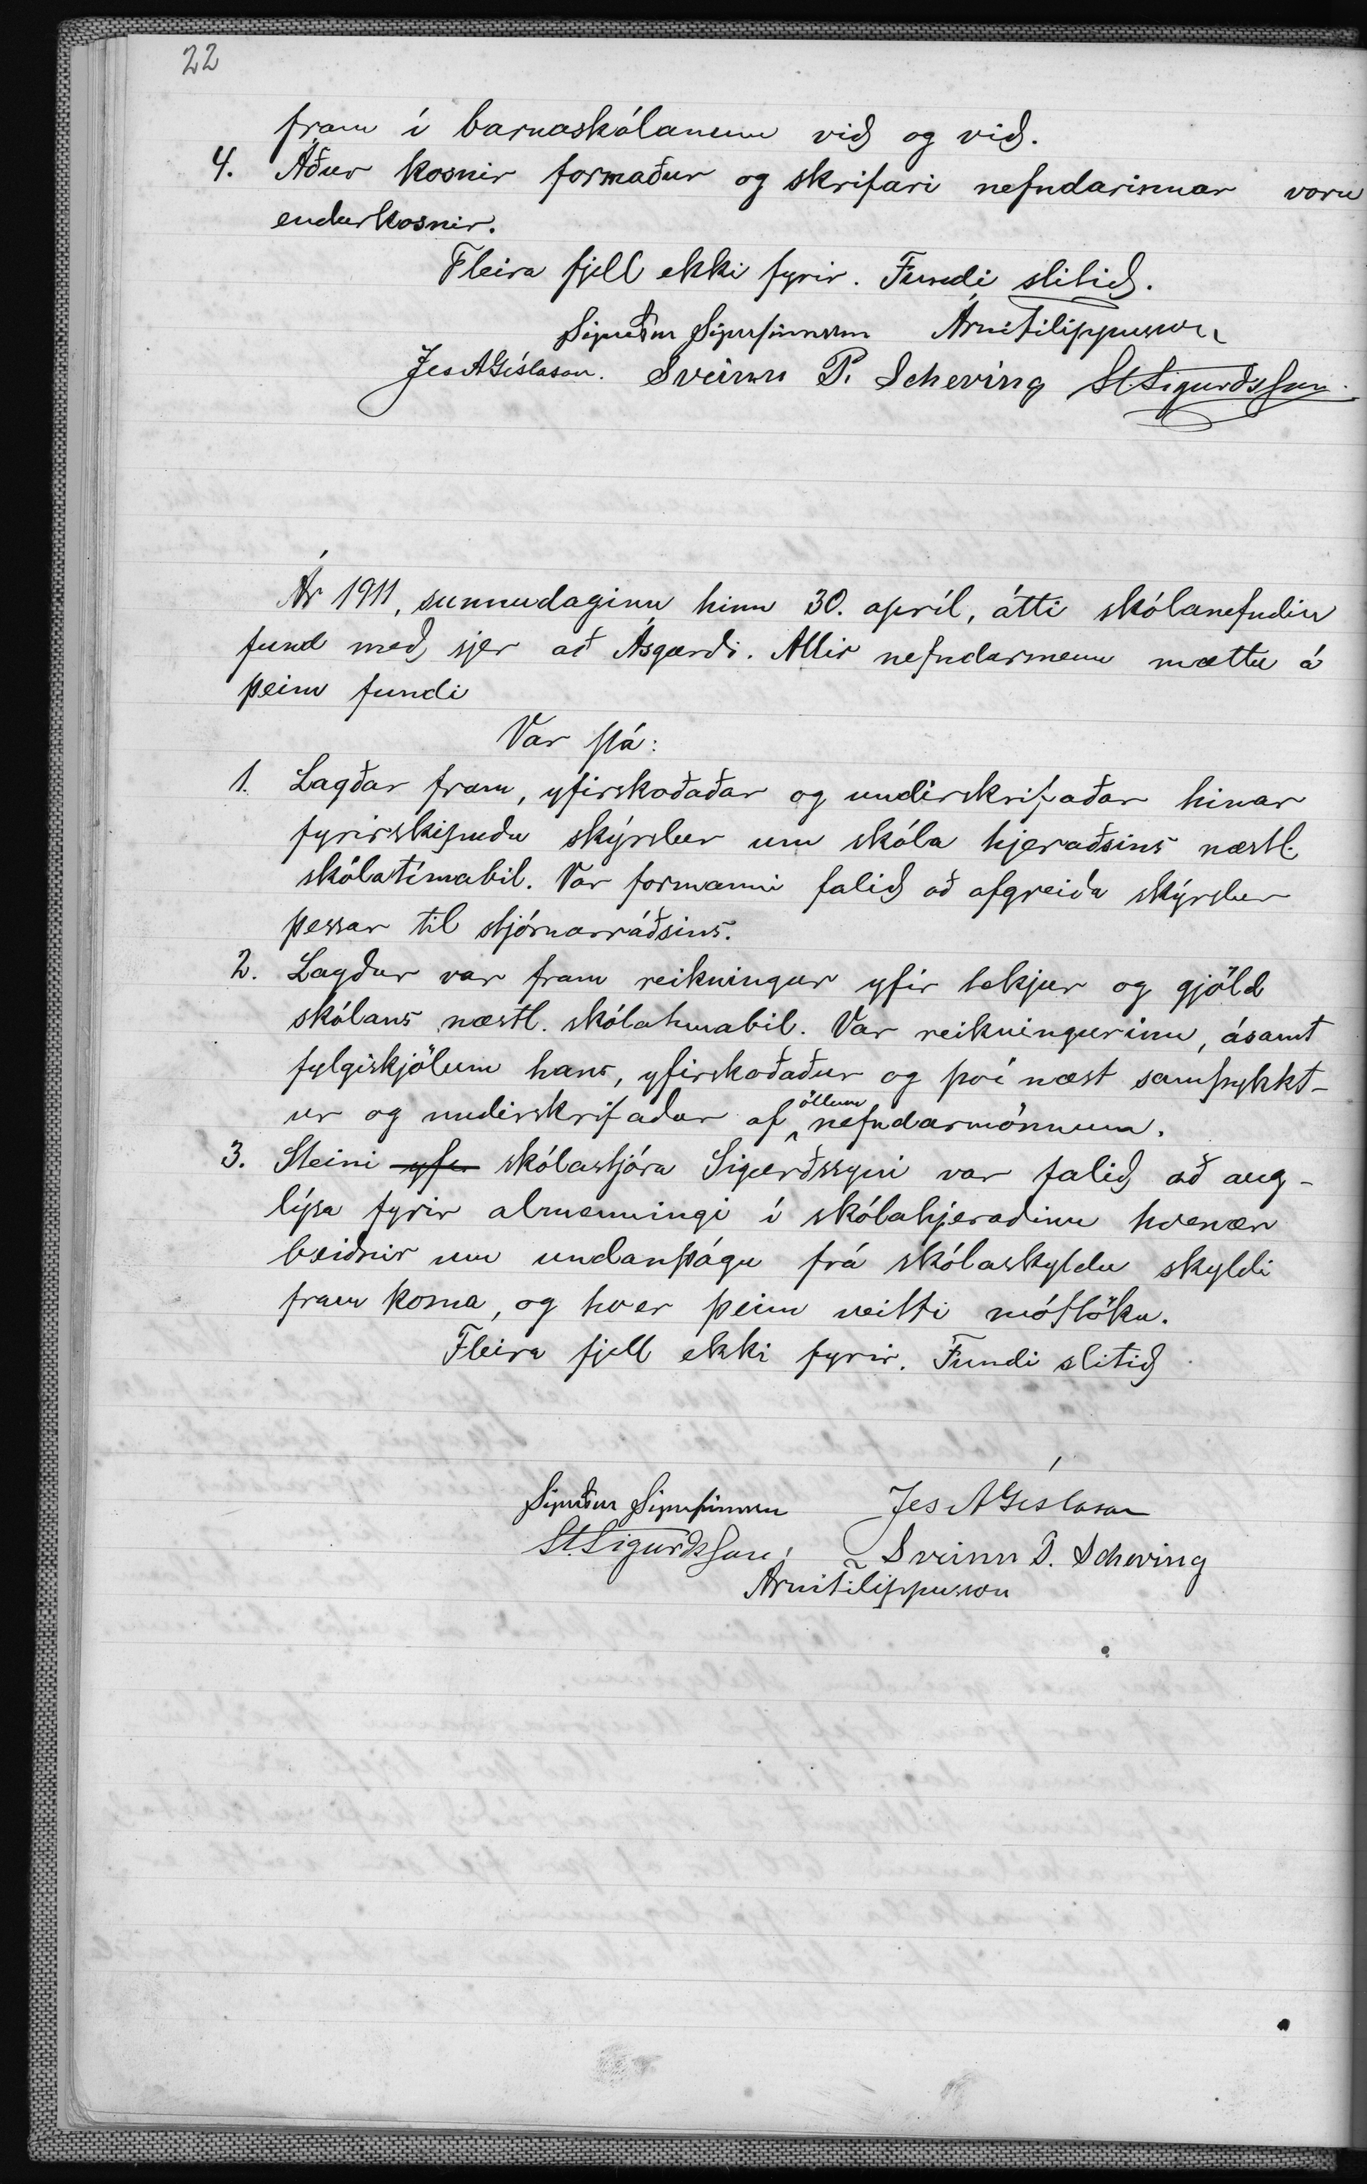 22
fram í barnaskólanum við og við.
4. Áður kosnir formaður og skrifari nefndarinnar voru
endurkosnir.
Fleira fjell ekki fyrir. Fundi slitið.
Sigurður Sigurfinnsson Árni Filippusson
Jes A Gíslason. Sveinn P. Scheving St. Sigurðsson.
Ár 1911, sunnudaginn hinn 30. apríl, átti skólanefndin
fund með sjer að Ásgarði. Allir nefndarmenn mættu á
þeim fundi
Var þá:
1. Lagðar fram, yfirskoðaðar og undirskrifaðar hinar
fyrirskipuðu skýrslur um skóla hjeraðsins næstl.
skólatímabil. Var formanni falið að afgreiða skýrslur
þessar til stjórnarráðsins.
2. Lagður var fram reikningur yfir tekjur og gjöld
skólans næstl. skólatímabil. Var reikningurinn, ásamt
fylgiskjölum hans, yfirskoðaður og því næst samþykkt-
ur og undirskrifaður af öllum nefndarmönnum.
3. Steini yfir skólastjóra Sigurðssyni var falið að aug-
lýsa fyrir almenningi í skólahjeraðinu hvenær
beiðnir um undanþágu frá skólaskyldu skyldi
fram koma, og hver þeim veitti móttöku.
Fleira fjell ekki fyrir. Fundi slitið
Sigurður Sigurfinnsson Jes A Gíslason
St. Sigurðsson. Sveinn P. Scheving
Árni Filippusson